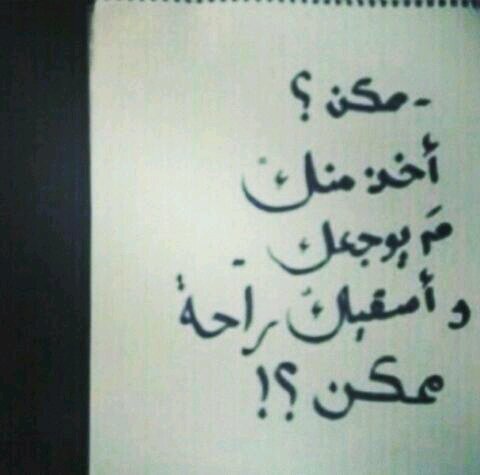 - ممكن ؟
أخذ منك
هَم يوجعك
و أسقيك راحة
ممكن ؟!